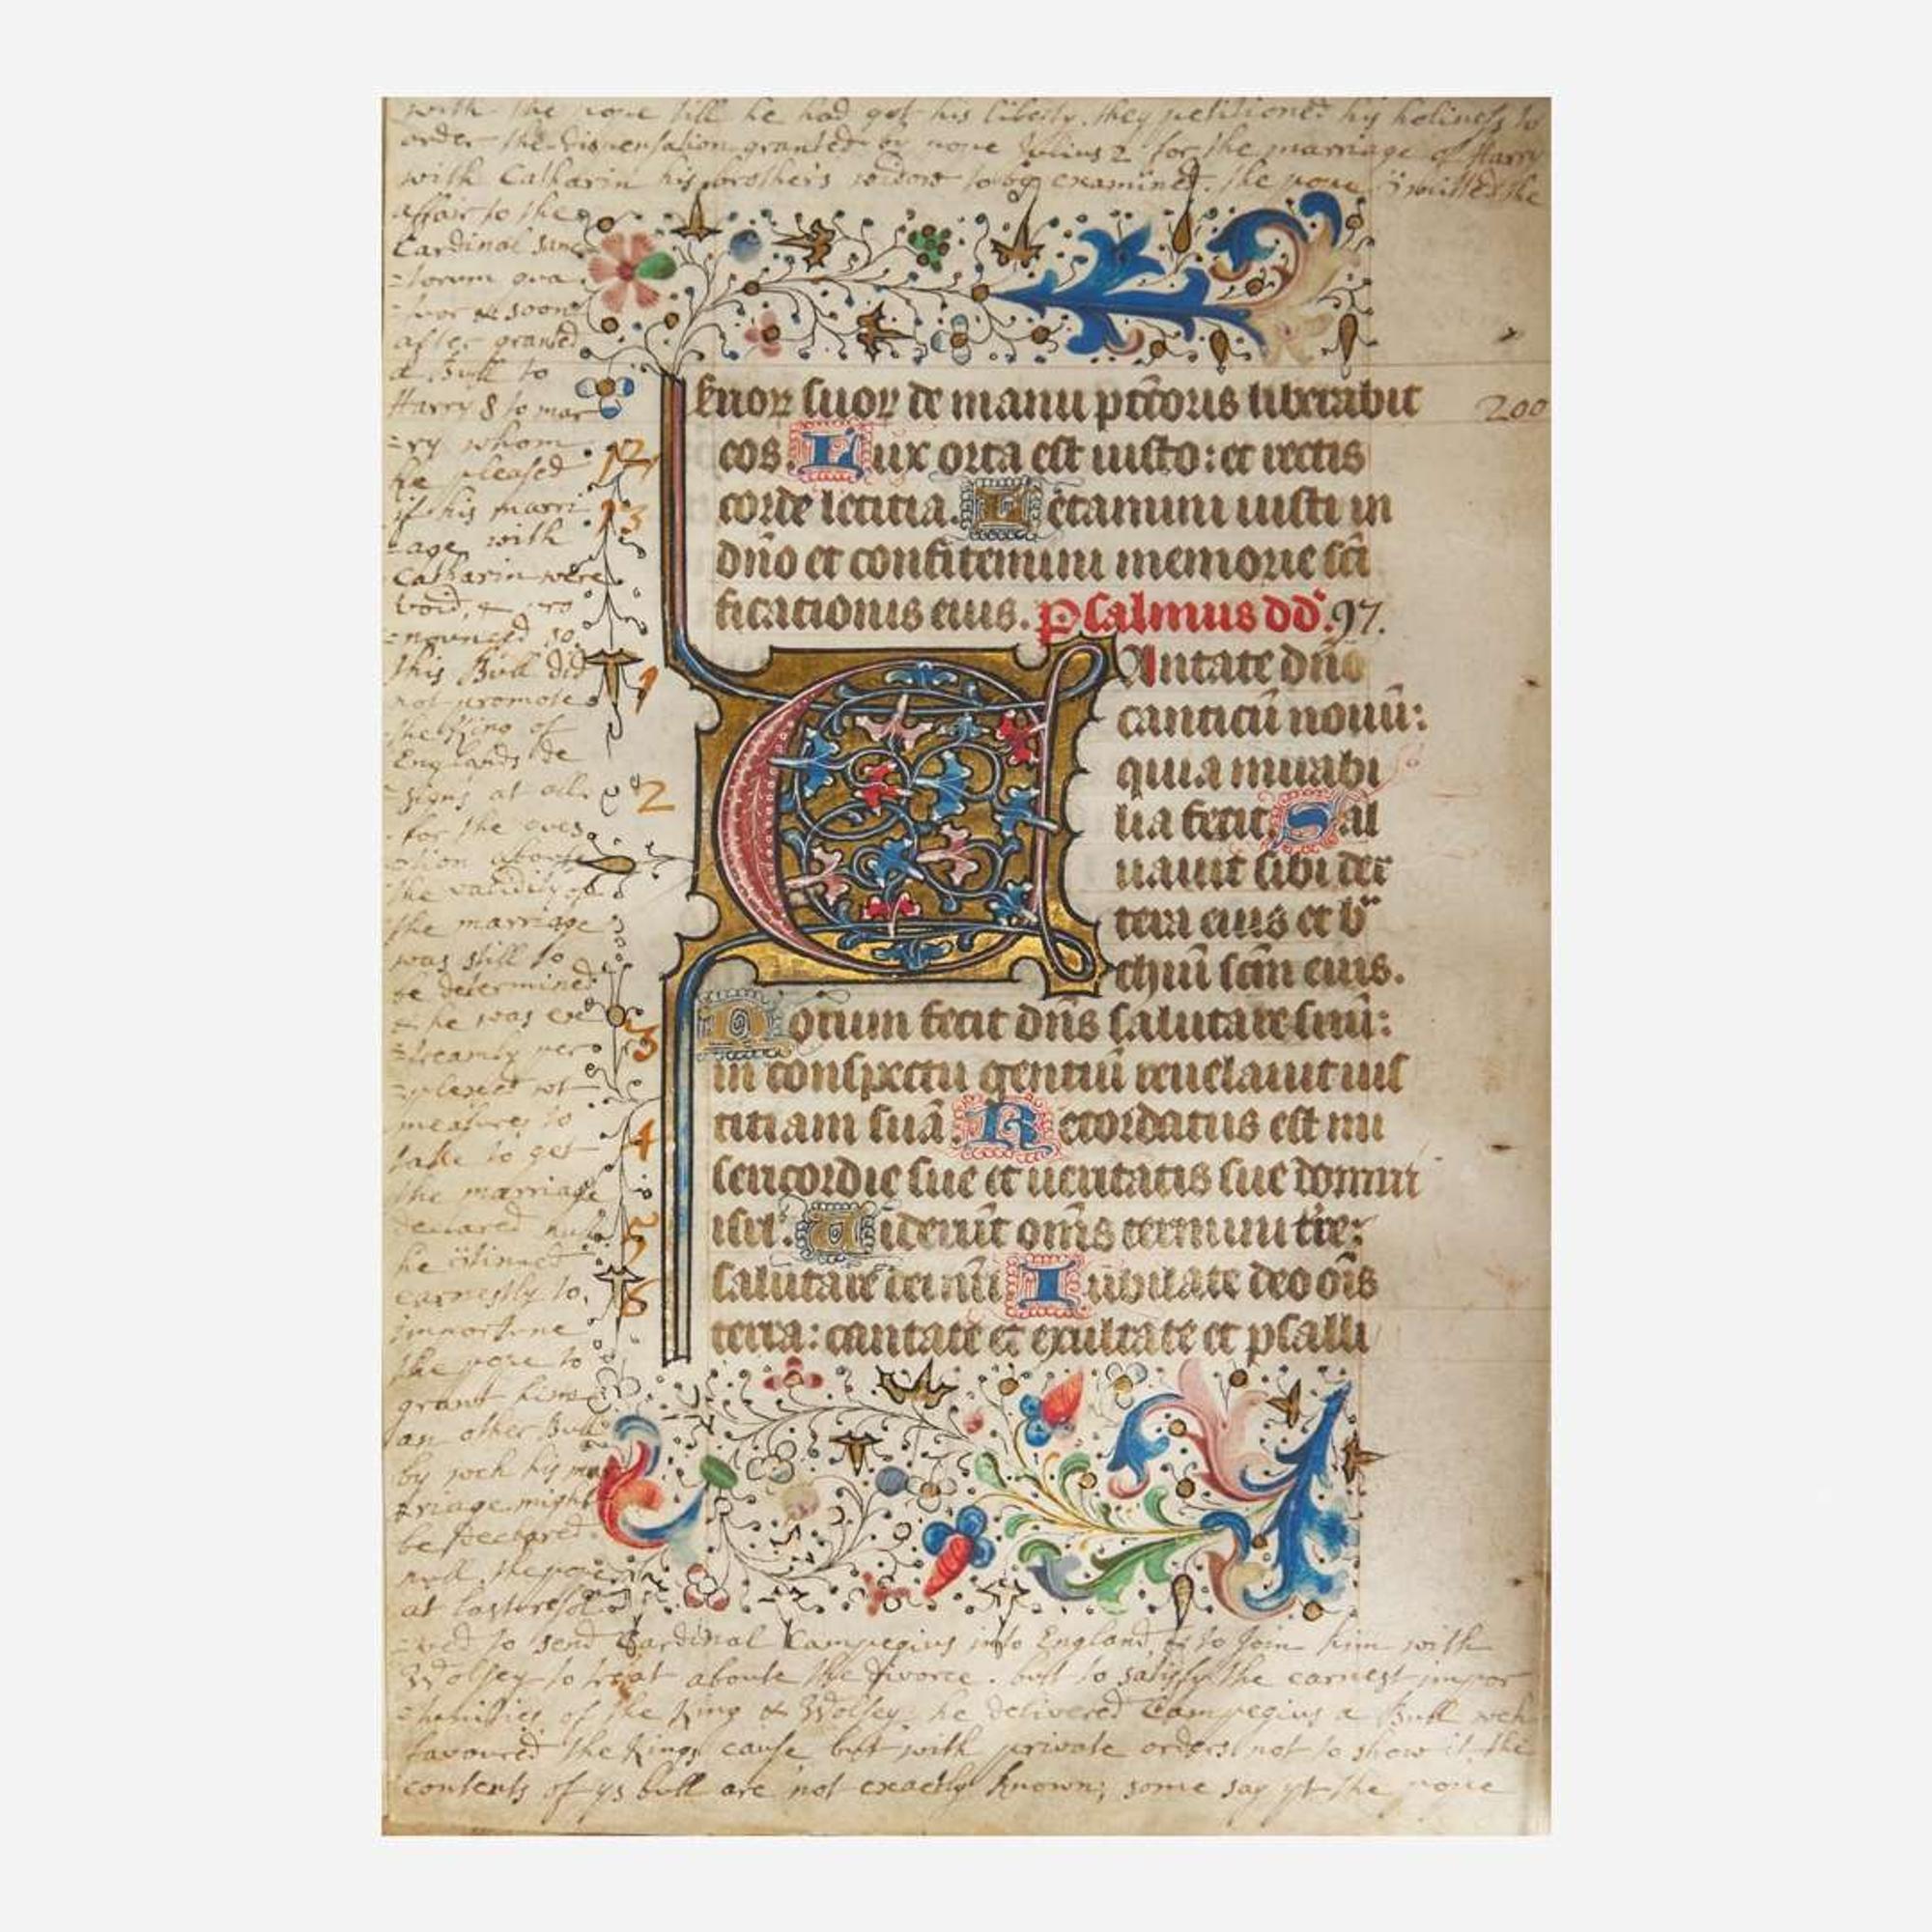 with the pope till he had got his liberty. they petitioned his holiness to
order the dispensation granted by pope Julius 2 for the marriage of Harry
with Catharin his brother's widow to be examined. the pope c̈mitted the
affair to the
Cardinal sanc
=torum qua
=tuor & soon
after granted
a Bull to
Harry 8 to mar
=ry whom
he pleased
if his marri
=age with
Catharin were
void, & pro
=nounced so.
this Bull did
not promote
the King of
Englands de
=signs at all.
for the ques
=tion about
the validity of
the marriage
was still to
be determined
& he was ex
=treamly per
=plexed wt
measures to
take to get
the marriage
declared null
he c̈tinued
earnestly to
importune
the pope to
grant him
an other Bull
by wch his mar
=riage might
be declared
null. the pope
at last resol
=ved to send Cardinal Campegius into England & to join him with
Wolsey to treat aboute the divorce. but to satisfy the earnest impor
=tunities of the King & Wolsey he delivered Campegius a Bull wch
favoured the Kings cause but with private orders not to show it. the
contents of ys bull are not exactly known; some say yt the pope
ctuoꝝ suoꝝ de manu pc̄cōris liberabit
200
eos. Lux orta est iusto: et rectis
12
corde leticia. Letamini iusti in
13
dn̄o et confitemini memorie sc̄i
ficationis eius. Psalmus dd̄. 97.
Antate dn̄o
1
canticū nouū:
quia mirabi
lia fecit. Sal
2
uauit sibi dex
tera eius et br̄
chiū sc̄m eius.
Notum fecit dn̄s salutare suū:
3
in conspectu gentiū reuelauit ius
titiam suā. Recordatus est mi
4
sericordie sue et ueritatis sue domui
isrl̄. Uiderūt om̄s termini tr̄e:
5
salutare dei nr̄i Iubilate deo om̄s
6
terra: cantate et exultate et psalli